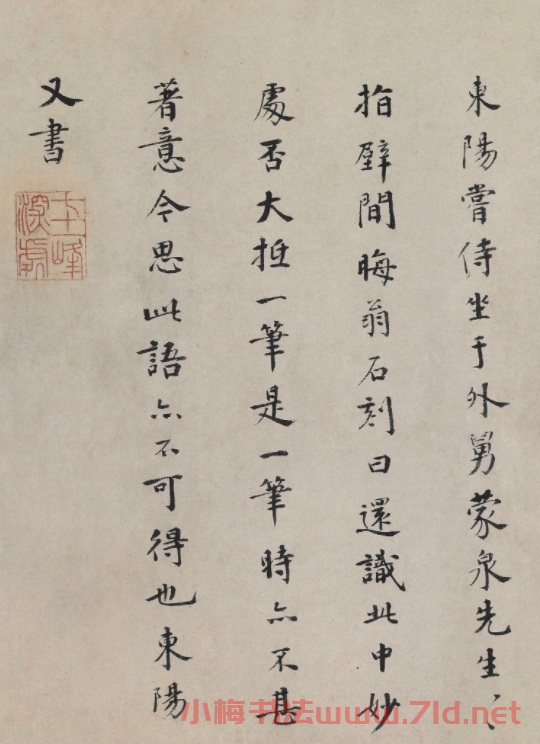 東陽嘗侍坐于外舅蒙泉先生〻
指壁間晦翁石刻曰還識此中妙
處否大抵一筆是一筆時亦不甚
著意今思此語亦不可得也東陽
又書
小梅书法www.7ld.net